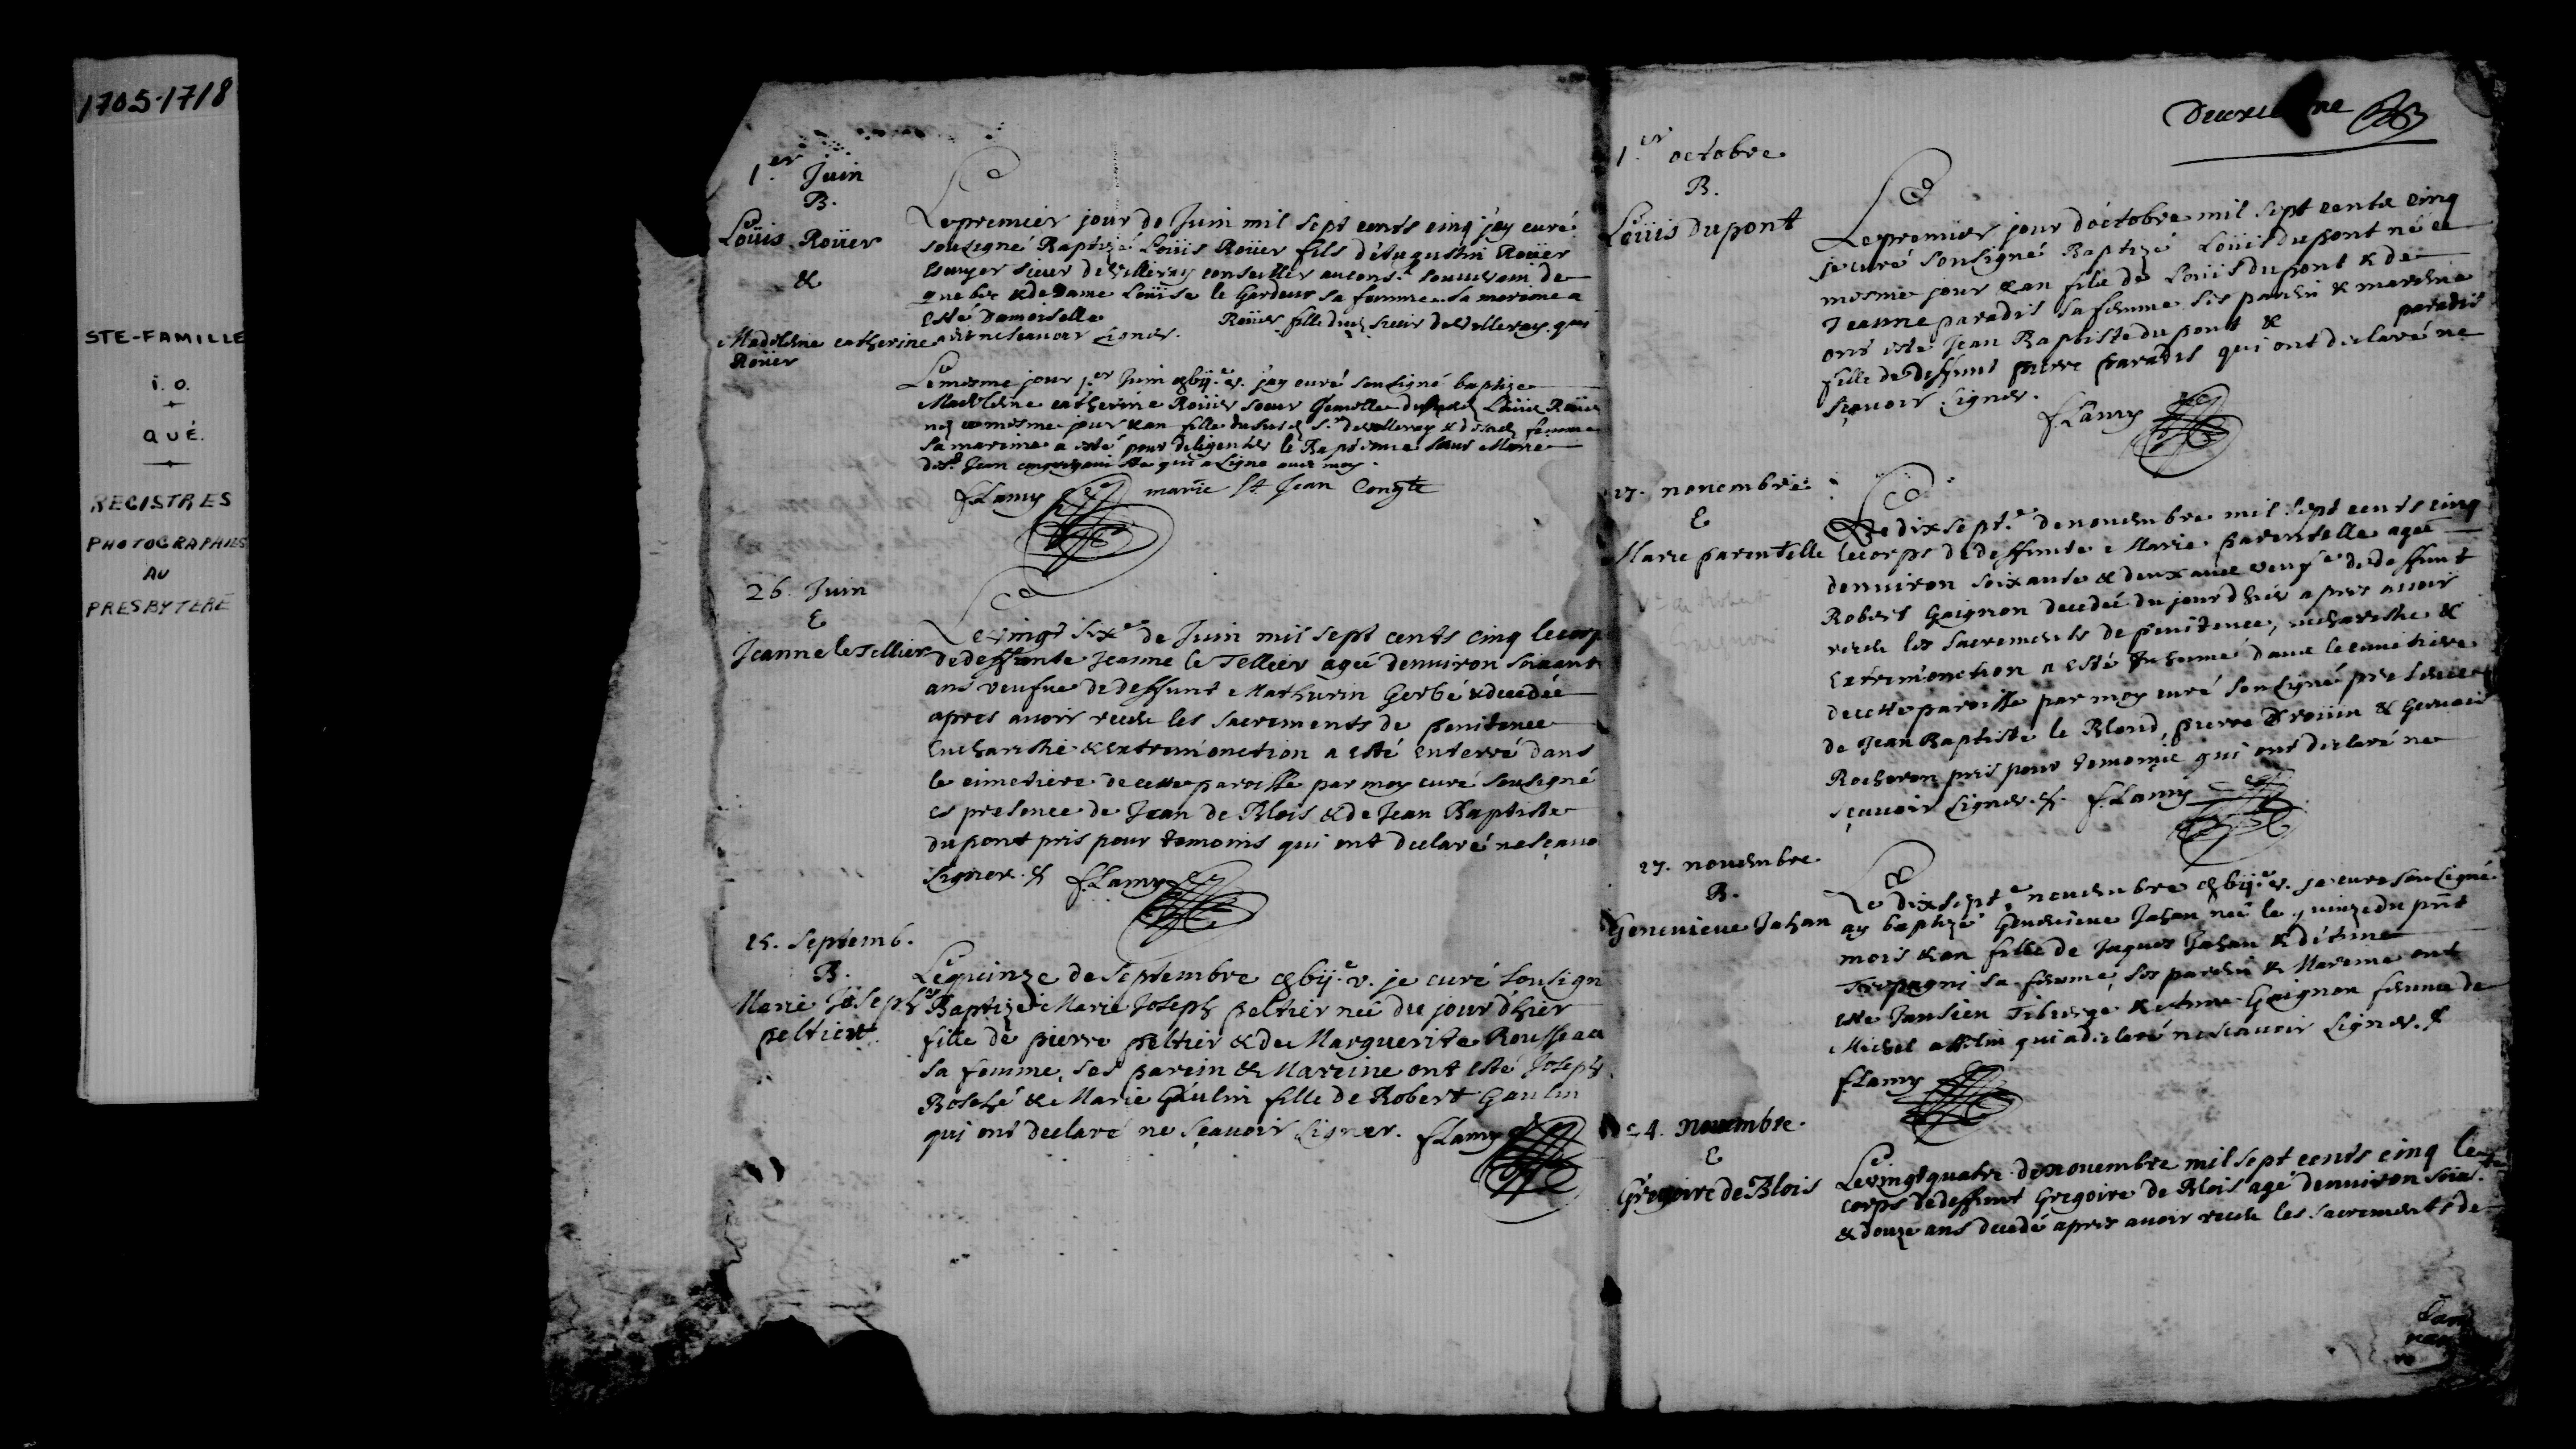 1705-1718
STE-FAMILLE
i. o.
QUÉ.
REGISTRES
PHOTOGRAPHIES
AU
PRESBYTERE
1.er Juin
B.
Loüis Roüer
&
Madelene catherine
Roüer
Le premier jour de Juin mil sept cents cinq j'ay curé
sousigné Baptizé Loüis Roüer fils d'Augustin Roüer
Escuyer sieur de Villeray conseiller au cons.l souuerain de
quebec & de Dame Loüise le Gardeur sa femme sa marine a
esté Damoiselle Roüer fille dud. sieur de Villeray qui
ne scauoir signer.
Le mesme jour 1.er Juin gbij.c v. j'ay curé sousigné baptize
Madelene catherine Roüer soeur Jumelle Loüis Roüer
mesme jour & an fille du susd. S.r de villeray & femme
sa marine a esté pour le Baptesme soeur Marie
de S.t Jean qui a signé auec moy.
f. Lamy marie St. Jean Congte
26. Juin
E
Jeanne le Tellier
Le vingt six.e de Juin mil sept cents cinq le corp
de deffunte Jeanne le Tellier ageé denuiron soixant
ans veufue de deffunt Mathurin Gerbé & decedée
apres auoir receu les sacrements de penitence
Eucharistie & extremionction a esté enterré dans
le cimetiere de cette paroisse par moy curé sousigné
es presence de Jean de Blois & de Jean Baptiste
dupont pris pour temoins qui ont declaré ne sçauo
signer. & f. Lamy
15. Septemb.
B.
Marie Joseph
peltier
Le quinze de Septembre gbij.c v. je curé sousign
Baptizé Marie Joseph peltier née du jour dhier
fille de pierre peltier & de Marguerite Rousseau
sa femme, ses parein & Mareine ont esté Joseph
Bosché & Marie Gaulin fille de Robert Gaulin
qui ont declaré ne sçauoir signer. f. Lamy
1.er octobre
B.
Loüis Dupont
Le premier jour d'octobre mil sept cents cinq
je curé sousigné Baptizé Loüis dupont né ce
mesme jour & an fils de Loüis dupont & de
Jeanne paradis sa femme ses parein & mareine
ont esté Jean Baptiste dupont & paradis
fille de deffunt pierre paradis qui ont declaré ne
sçauoir signer.
f. Lamy
17. nouembre
E
Marie parentelle
Le dix sept.e de nouembre mil sept cents cinq
le corps de deffunte Marie parentelle ageé
denuiron soixante & deux ans veufe de deffunt
Robert Gaignon decedée du jour d'hier apres auoir
receu les sacrements de penitence, eucharistie &
extremionction a esté Inhumé dans le cimetiere
de cette paroisse par moy curé sousigné presence
de Jean Baptiste le Blond, pierre Droüin & Geruais
Rocheron pris pour temoins qui ont declaré ne
sçauoir signer. & f. Lamy
17. nouembre
B.
Geneuieue Jahan
Le dix sept.e nouembre gbij.c v. je curé sousigné
ay baptizé Geneuieue Jahan née le quinze du pnt
mois & an fille de Jaques Jahan & d'Anne
Trepagni sa femme, ses parein & Mareine ont
esté Tansien Tiberge & Anne Gaignon femme de
Michel asselin qui a declaré ne scauoir signer. &
f. Lamy
24. nouembre
E
Gregoire de Blois
Le vingt quatre de nouembre mil sept cents cinq le
corps de deffunt Gregoire de Blois agé denuiron soix.te
& douze ans decedé apres auoir receu les sacrements de